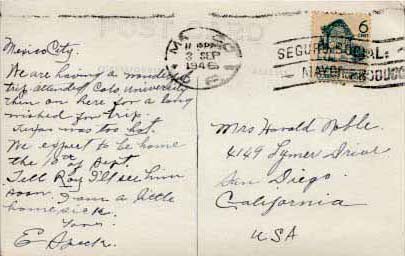 POST CARD
Mexico City.
We are having a wonderful
trip attended Colo University
then on here for a long
wished for trip.
Texas was too hot.
We expect to be home
the 10th Sept.
Tell Roy I'll see him
soon. I am a little
homesick.
Your
E Speck.
3 SEP
1946
6
SEGURO SOCIAL:
MAYOR PRODUCC
Mrs Harold Noble.
4149 Lymer Drive
San Diego.
California
USA